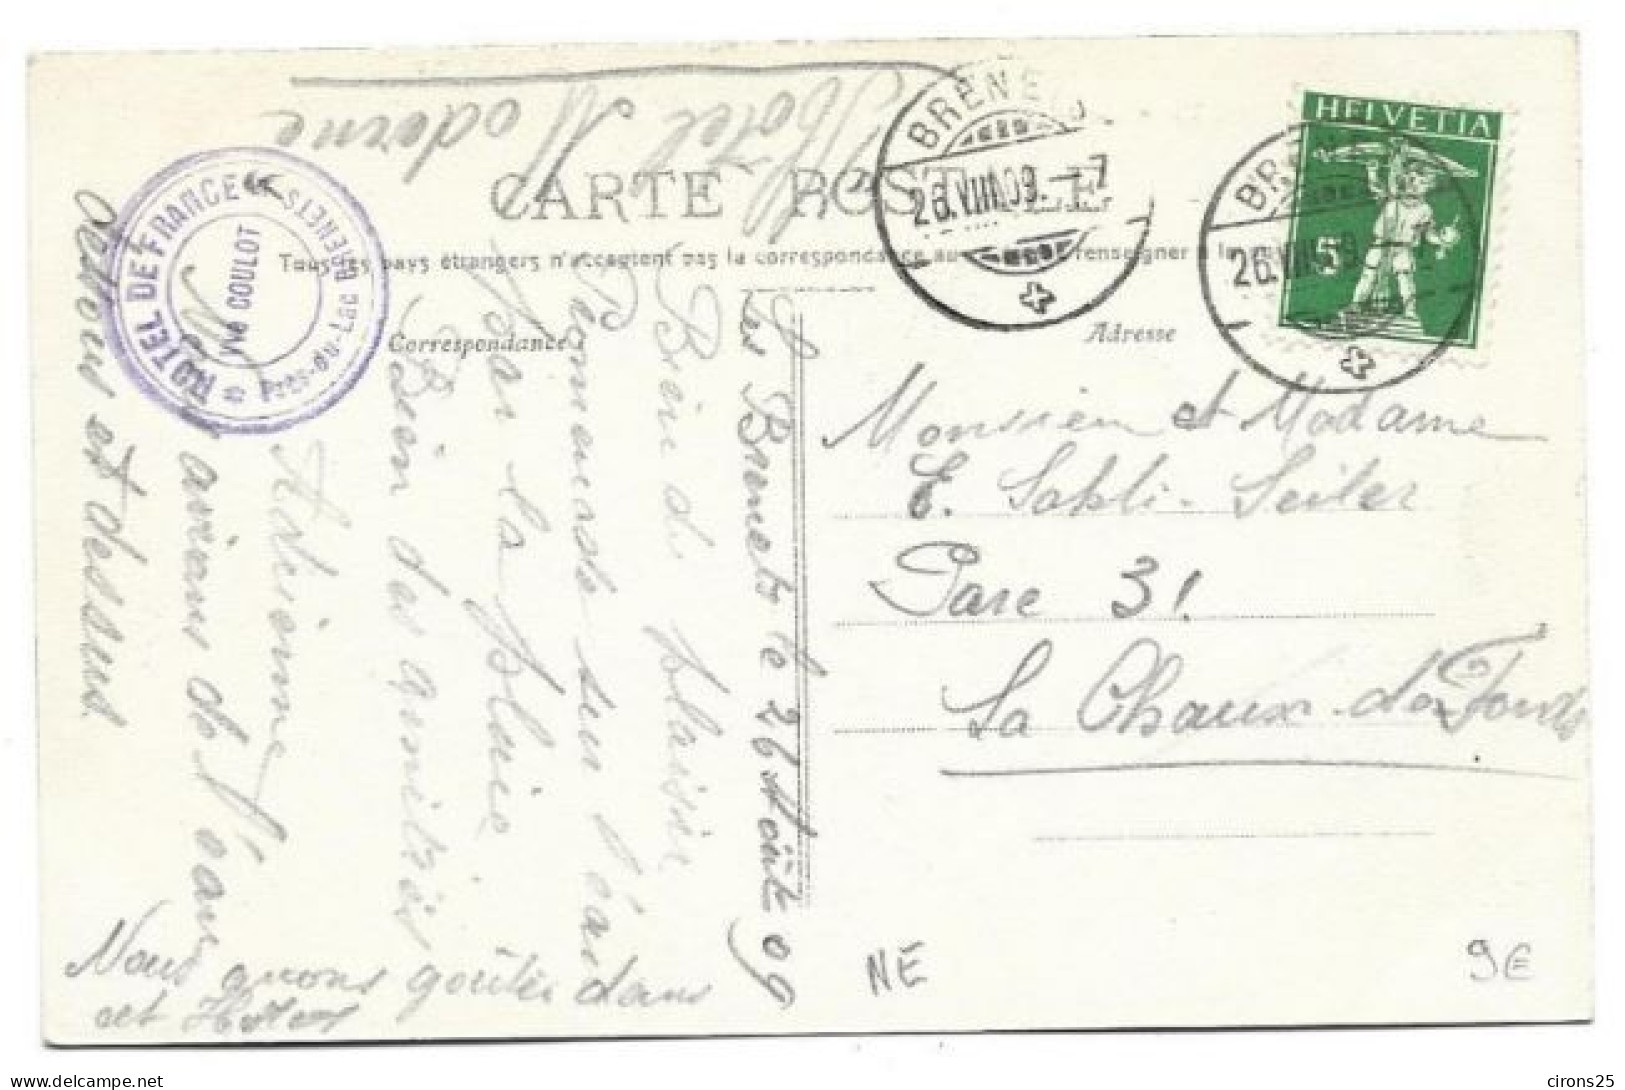 Hôtel Moderne
CARTE POSTALE
Tous les pays étrangers n'acceptent pas la correspondance au renseigner à la
Correspondance
Adresse
HELVETIA
5
BRENETS
26.VIII.09.-7
BRENETS
26.VIII.09
HOTEL DE FRANCE
Près-du-Lac BRENETS
Vve COULOT
Les Brenets le 26 Août 09
Bien du plaisir
Promenade sur l'eau
par la pluie
Bien des amitiés
Adrienne
Nous avions de l'eau
dessous et dessus
Nous avons goûter dans
cet Hôtel
Monsieur et Madame
E. Sahli-Seiler
Parc 31
La Chaux-de-Fonds
NE
9€
delcampe.net
cirons25